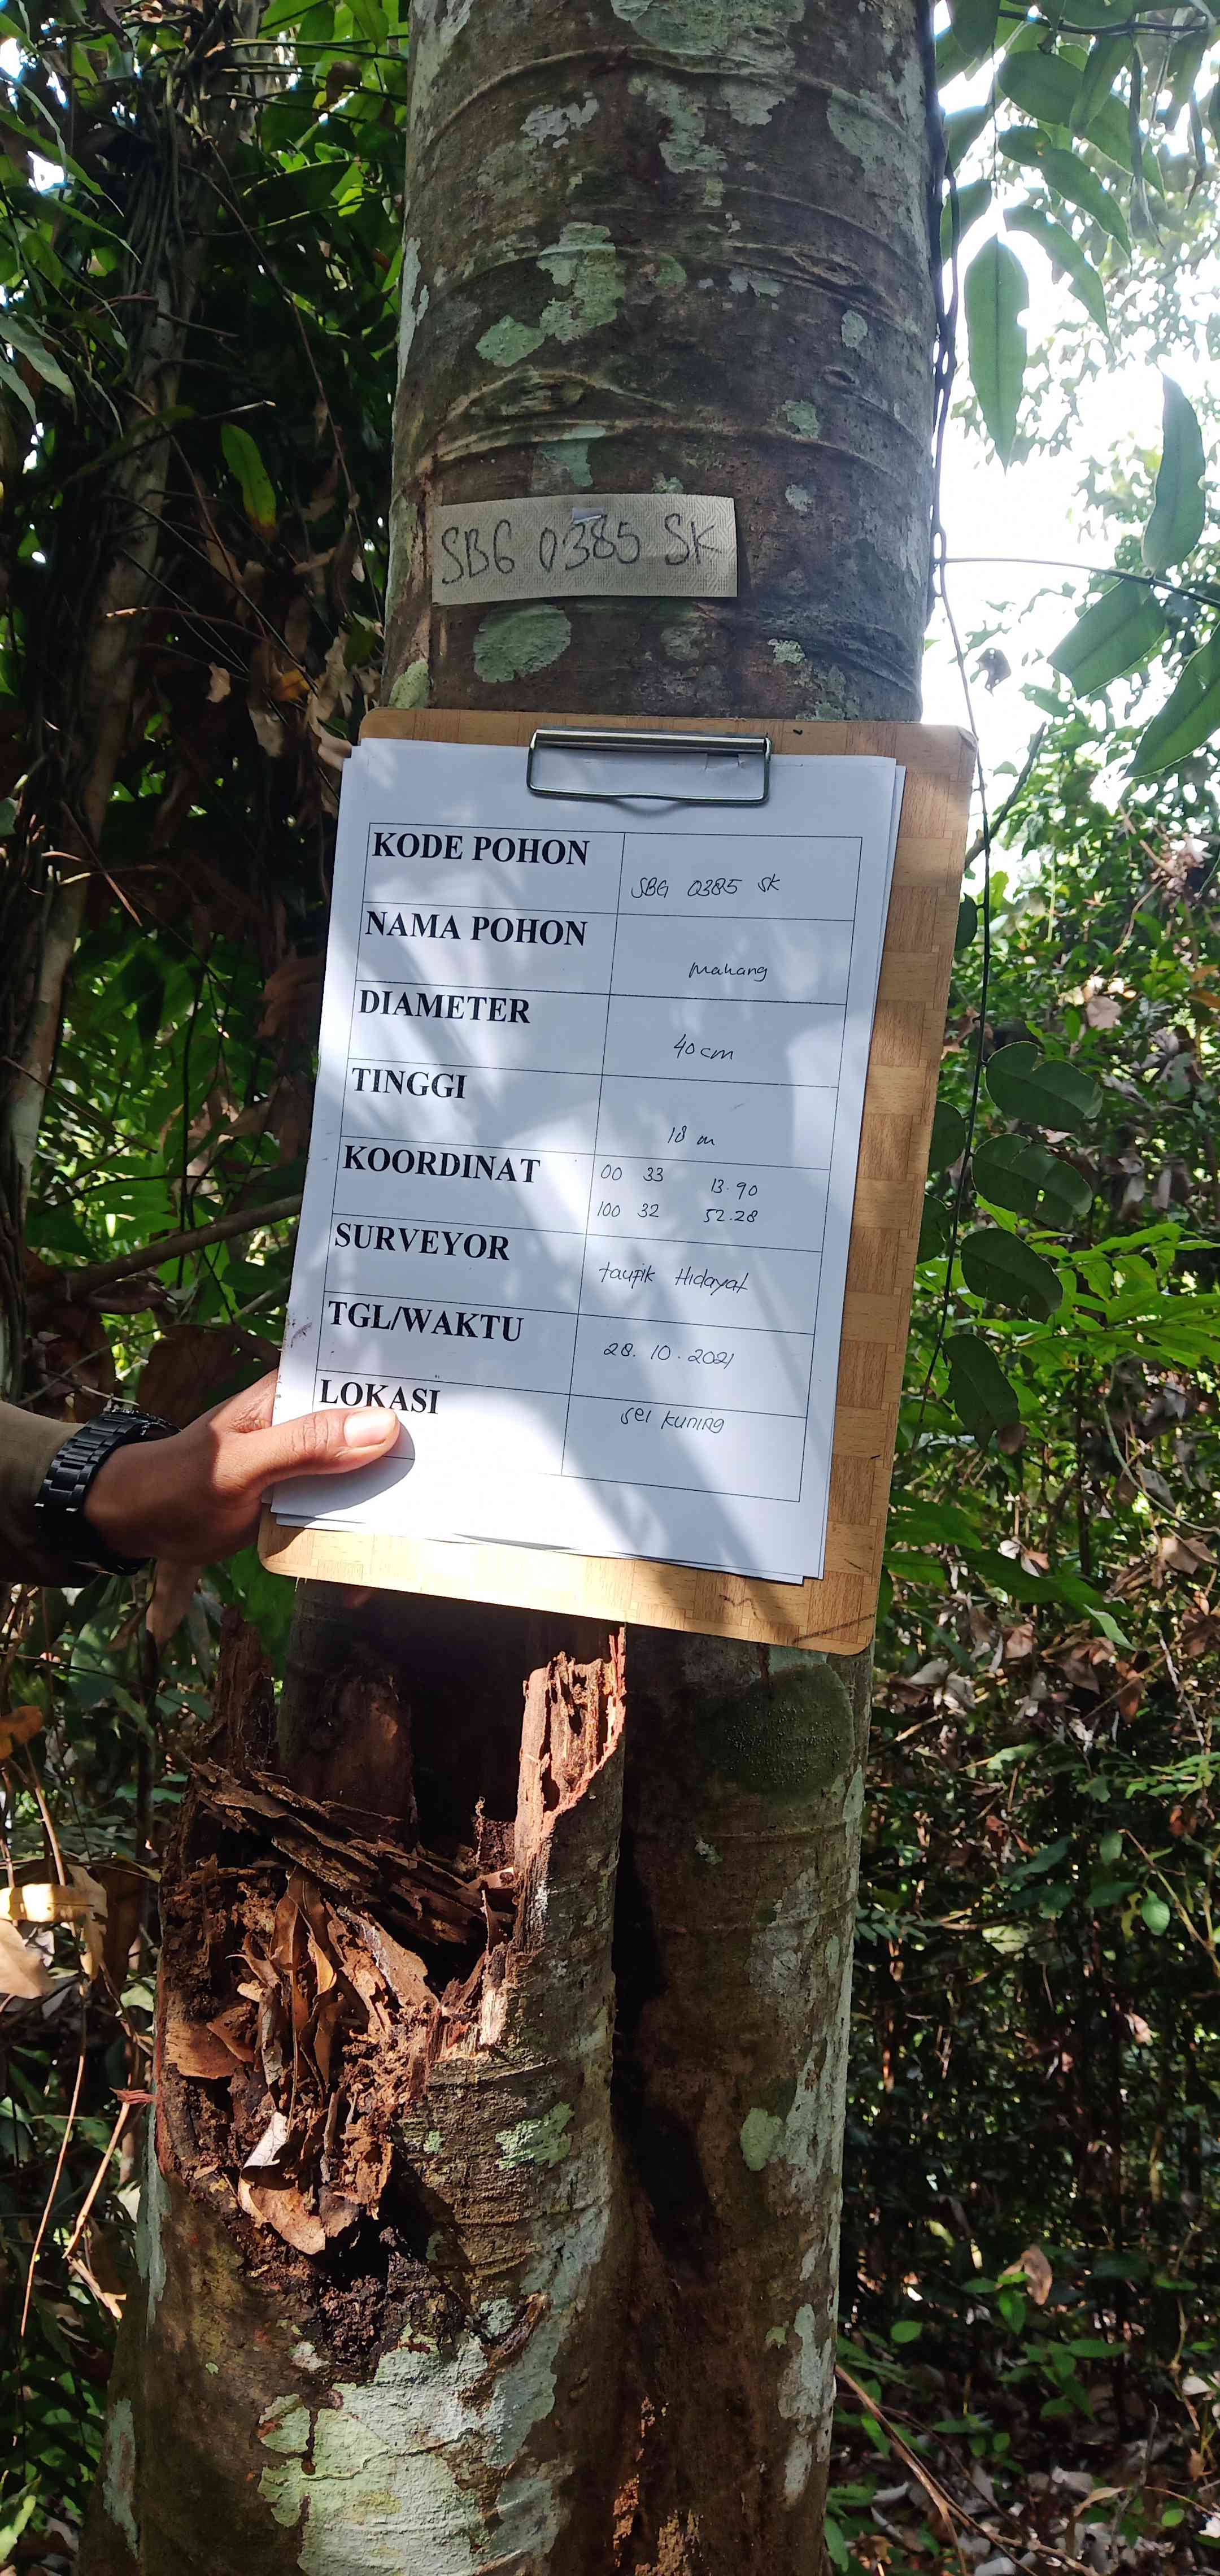 SBG 0385 SK
KODE POHON
SBG 0385 SK
NAMA POHON
Mahang
DIAMETER
40 cm
TINGGI
18 m
KOORDINAT
00 33 13.90
100 32 52.28
SURVEYOR
taufik Hidayat
TGL/WAKTU
28.10.2021
LOKASI
Sei Kuning